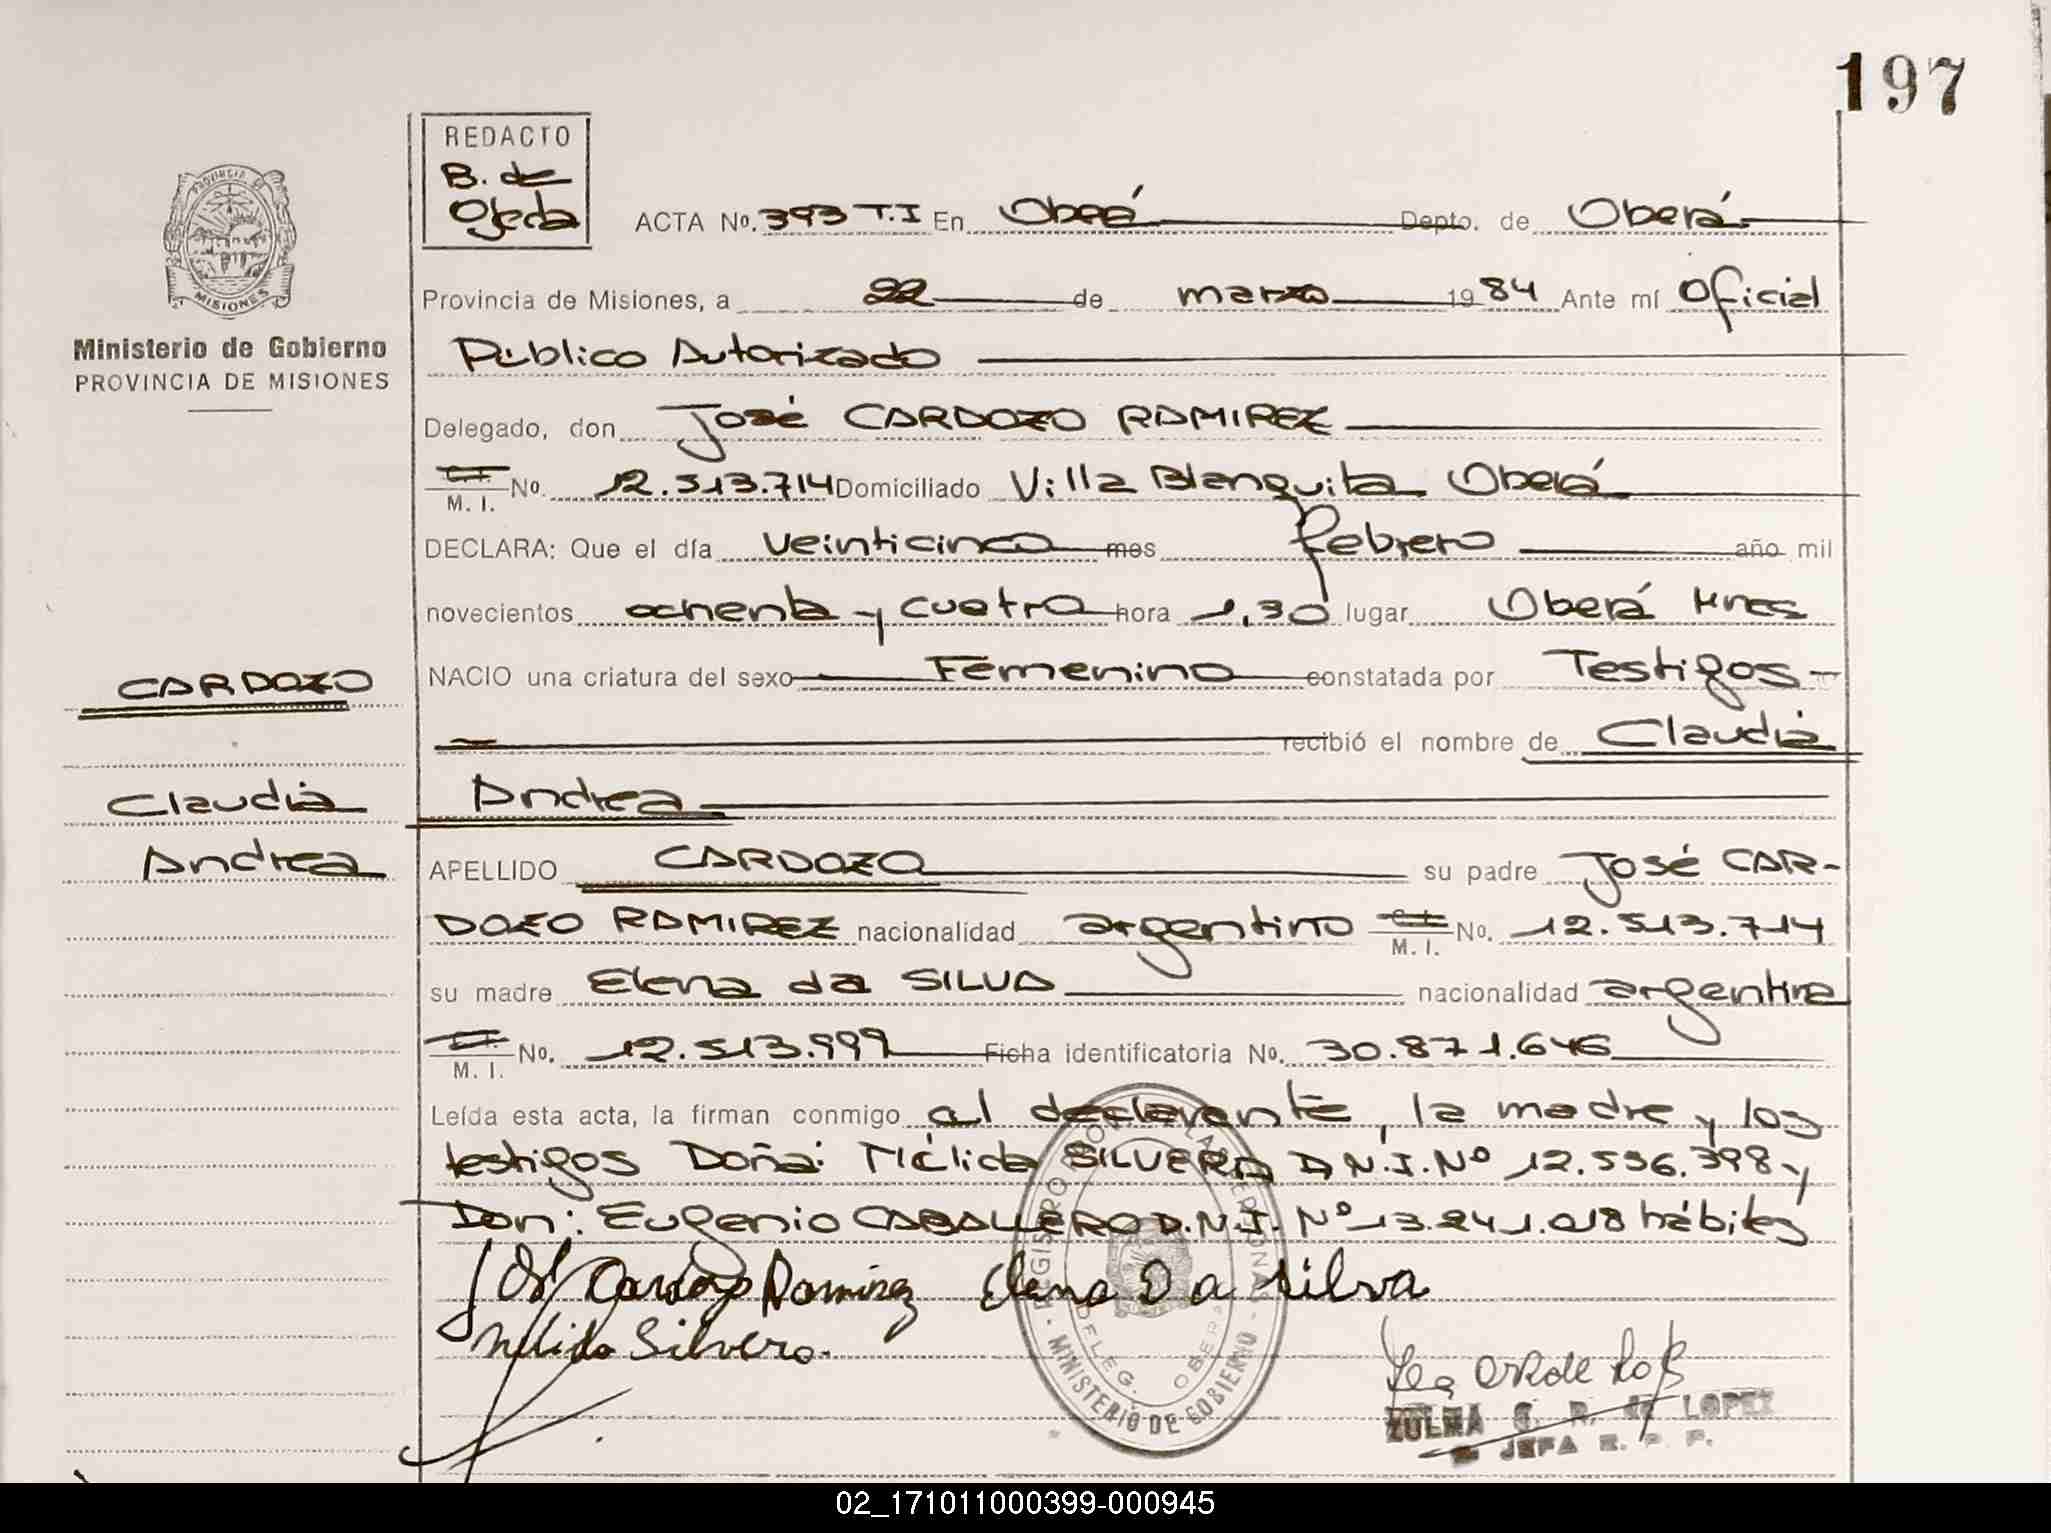 197
REDACTO
B. de
Ojeda
ACTA No. 393 T.I En Oberá Depto. de Oberá
PROVINCIA DE
MISIONES
Provincia de Misiones, a 22 de marzo 1984 Ante mí Oficial
Ministerio de Gobierno
PROVINCIA DE MISIONES
Público Autorizado
Delegado, don José CARDOZO RAMIREZ
C.I.
M. I. No. 12.513.714 Domiciliado Villa Blanquita Oberá
DECLARA: Que el día veinticinco mes febrero año mil
novecientos ochenta y cuatro hora 1,30 lugar Oberá Mnes
NACIO una criatura del sexo Femenino constatada por Testigos
recibió el nombre de Claudia
Andrea
CARDOZO
Claudia
Andrea
APELLIDO CARDOZO su padre José CAR-
DOZO RAMIREZ nacionalidad argentino C.I. M. I. No. 12.513.714
su madre Elena da SILVA nacionalidad argentina
C.I. M. I. No. 12.513.999 Ficha identificatoria No. 30.871.646
Leída esta acta, la firman conmigo el declarante, la madre y los
testigos Doña: Nélida SILVERO D.N.I. Nº 12.536.398 y
Don: Eugenio CABALLERO D.N.I. Nº 13.241.018 hábiles
José Cardozo Ramirez Elena Da Silva
Nelida Silvero.
REGISTRO PERSONAS
DELEG. OBERÁ
MINISTERIO DE GOBIERNO
ZULMA G. R. de LOPEZ
JEFA R. P. P.
02_171011000399-000945